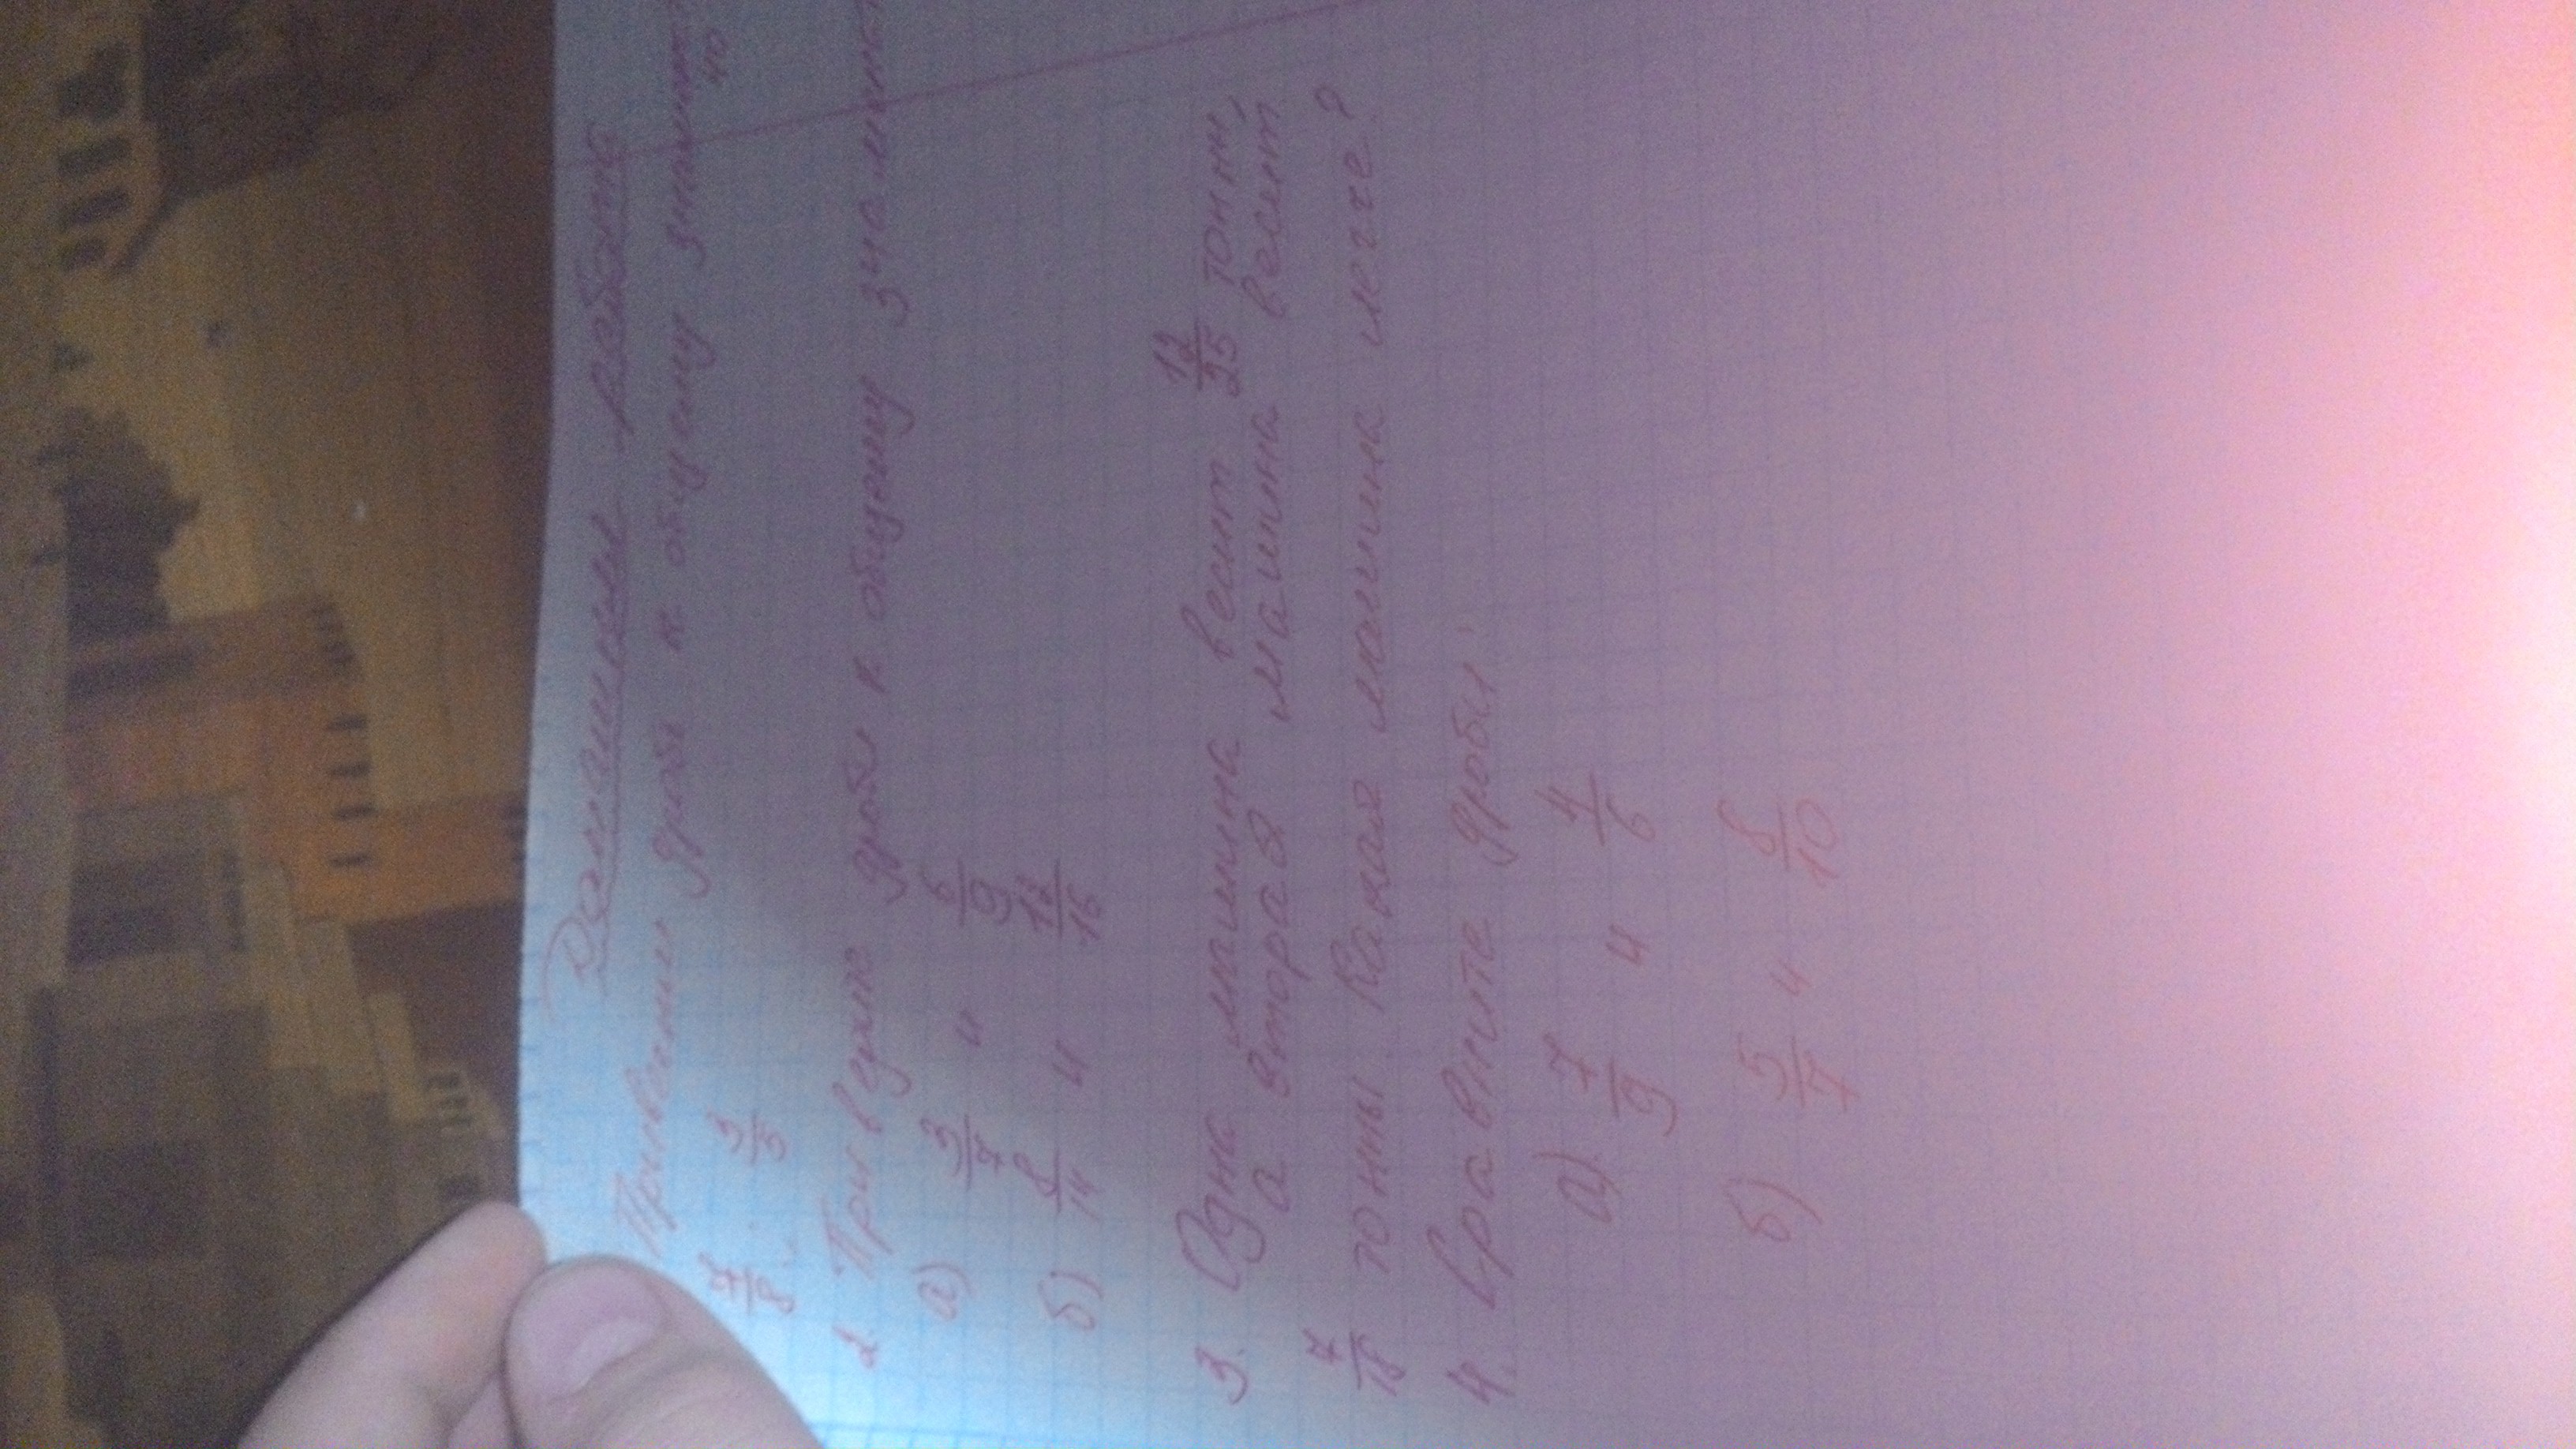 Домашняя работа
Привести дробь к общему знамен
40
7/8 . 3/5
2 Приведите дроби к общему знаменат
а) 3/7 и 6/9
б) 8/14 и 12/16
3. Одна машина весит 12/25 тонн,
а вторая машина весит
7/18 тонны Какая машина легче?
4. Сравните дробы:
а) 7/9 и 4/6
б) 5/7 и 8/10